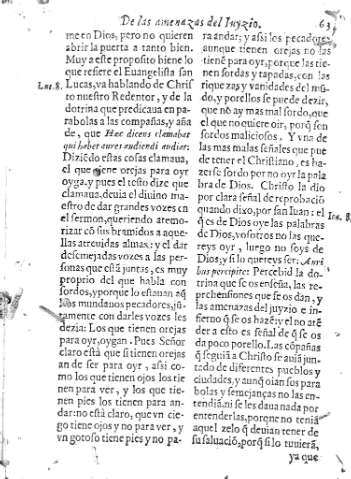 De las amenazas del Iuyzio. 63
me en Dios, pero no quieren
abrir la puerta a tanto bien.
Muy a este proposito biene lo
que refiere el Euangelista san
Luc. 8.
Lucas, va hablando de Chris
to nuestro Redentor, y de la
dotrina que predicaua en pa-
rabolas a las compañas, y aña
de, que Hæc dicens clamabat
qui habet aures audiendi audiat:
Diziẽdo estas cosas clamaua,
el que tiene orejas para oyr
oyga. y pues el testo dize que
clamaua, deuia el diuino ma-
estro de dar grandes vozes en
el sermon, queriendo atemo-
rizar cõ sus bramidos a aque-
llas atreuidas almas: y el dar
desmejadas vozes a las per-
sonas que estã juntas, es muy
proprio del que habla con
sordos, y porque lo estauan aq̃
llos mundanos pecadores, ju-
tamente con darles vozes les
dezia: Los que tienen orejas
para oyr, oygan. Pues Señor
claro està que si tienen orejas
an de ser para oyr, assi co-
mo los que tienen ojos los tie
nen para ver, y los que tie-
nen pies los tienen para an-
dar: no està claro, que vn cie-
go tiene ojos y no para ver, y
vn gotoso tiene pies y no pa-
ra andar; y assi los pecadores
aunque tienen orejas no las
tiene para oyr, porque las tie-
nen sordas y tapadas, con las
riquezas y vanidades del mũ-
do, y por ellos se puede dezir,
que no ay mas mal sordo, que
el que no quiere oir, porq̃ son
sordos maliciosos. Y vna de
las mas malas señales que pue
de tener el Christiano, es ha-
zerse sordo por no oyr la pala
bra de Dios. Christo la dio
por clara señal de reprobaciõ
quando dixo, por san Iuan: el
Ioan. 8.
q̃ es de Dios oye las palabras
de Dios, vosotros no las que-
reys oyr, luego no soys de
Dios; y si lo quereys ser: Auri
bus percipite: Percebid la do-
trina que se os enseña, las re-
prehensiones que se os dan, y
las amenazas del juyzio e in-
fierno q̃ se os hazẽ: y el no atẽ
der a esto es señal de q̃ se os
da poco por ello. Las cõpañas
q̃ seguiã a Christo se auiã jun-
tado de diferentes pueblos y
ciudades, y aunq̃ oian sus para
bolas y semejanças no las en-
tendiã. ni se les daua nada por
entenderlas, porque no teniã
aquel zelo q̃ deuian tener de
su saluaciõ, porq̃ si lo tuuierã,
ya que